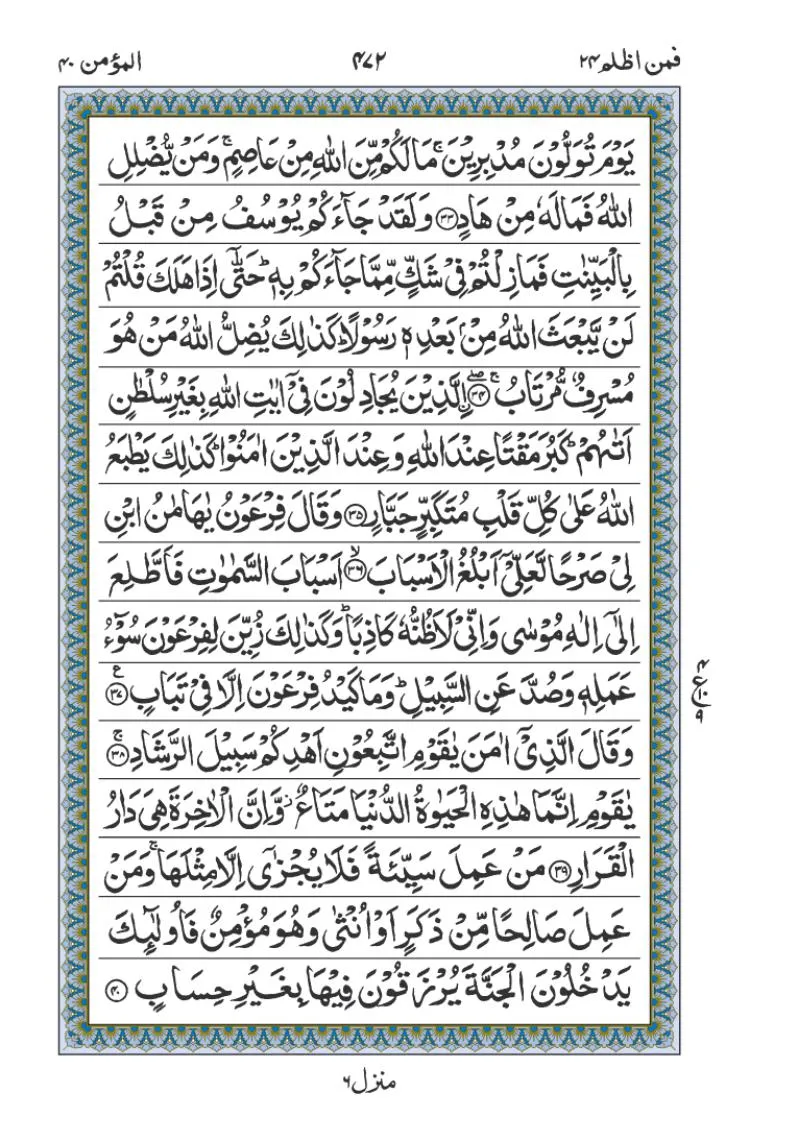 فمن اظلم ۲۴ ۴۷۲ المؤمن ۴۰
يَوْمَ تُوَلُّوْنَ مُدْبِرِيْنَ ۚ مَا لَكُمْ مِّنَ اللّٰهِ مِنْ عَاصِمٍ ۚ وَمَنْ يُّضْلِلِ
اللّٰهُ فَمَا لَهٗ مِنْ هَادٍ ۝۳۳ وَلَقَدْ جَآءَكُمْ يُوْسُفُ مِنْ قَبْلُ
بِالْبَيِّنٰتِ فَمَا زِلْتُمْ فِيْ شَكٍّ مِّمَّا جَآءَكُمْ بِهٖ ؕ حَتّٰۤى اِذَا هَلَكَ قُلْتُمْ
لَنْ يَّبْعَثَ اللّٰهُ مِنْۢ بَعْدِهٖ رَسُوْلًا ؕ كَذٰلِكَ يُضِلُّ اللّٰهُ مَنْ هُوَ
مُسْرِفٌ مُّرْتَابُ ۝۳۴ ۚۖ اِ۟لَّذِيْنَ يُجَادِلُوْنَ فِيْۤ اٰيٰتِ اللّٰهِ بِغَيْرِ سُلْطٰنٍ
اَتٰىهُمْ ؕ كَبُرَ مَقْتًا عِنْدَ اللّٰهِ وَعِنْدَ الَّذِيْنَ اٰمَنُوْا ؕ كَذٰلِكَ يَطْبَعُ
اللّٰهُ عَلٰى كُلِّ قَلْبِ مُتَكَبِّرٍ جَبَّارٍ ۝۳۵ وَقَالَ فِرْعَوْنُ يٰهَامٰنُ ابْنِ
لِيْ صَرْحًا لَّعَلِّيْۤ اَبْلُغُ الْاَسْبَابَ ۝۳۶ ۙ اَسْبَابَ السَّمٰوٰتِ فَاَطَّلِعَ
اِلٰۤى اِلٰهِ مُوْسٰى وَاِنِّيْ لَاَظُنُّهٗ كَاذِبًا ؕ وَكَذٰلِكَ زُيِّنَ لِفِرْعَوْنَ سُوْٓءُ
عَمَلِهٖ وَصُدَّ عَنِ السَّبِيْلِ ؕ وَمَا كَيْدُ فِرْعَوْنَ اِلَّا فِيْ تَبَابٍ ۝۳۷ ع
وَقَالَ الَّذِيْۤ اٰمَنَ يٰقَوْمِ اتَّبِعُوْنِ اَهْدِكُمْ سَبِيْلَ الرَّشَادِ ۝۳۸ ۚ
يٰقَوْمِ اِنَّمَا هٰذِهِ الْحَيٰوةُ الدُّنْيَا مَتَاعٌ ؗ وَّاِنَّ الْاٰخِرَةَ هِيَ دَارُ
الْقَرَارِ ۝۳۹ مَنْ عَمِلَ سَيِّئَةً فَلَا يُجْزٰۤى اِلَّا مِثْلَهَا ۚ وَمَنْ
عَمِلَ صَالِحًا مِّنْ ذَكَرٍ اَوْ اُنْثٰى وَهُوَ مُؤْمِنٌ فَاُولٰٓئِكَ
يَدْخُلُوْنَ الْجَنَّةَ يُرْزَقُوْنَ فِيْهَا بِغَيْرِ حِسَابٍ ۝۴۰
۴
ع ۱۰
۹
منزل ۶